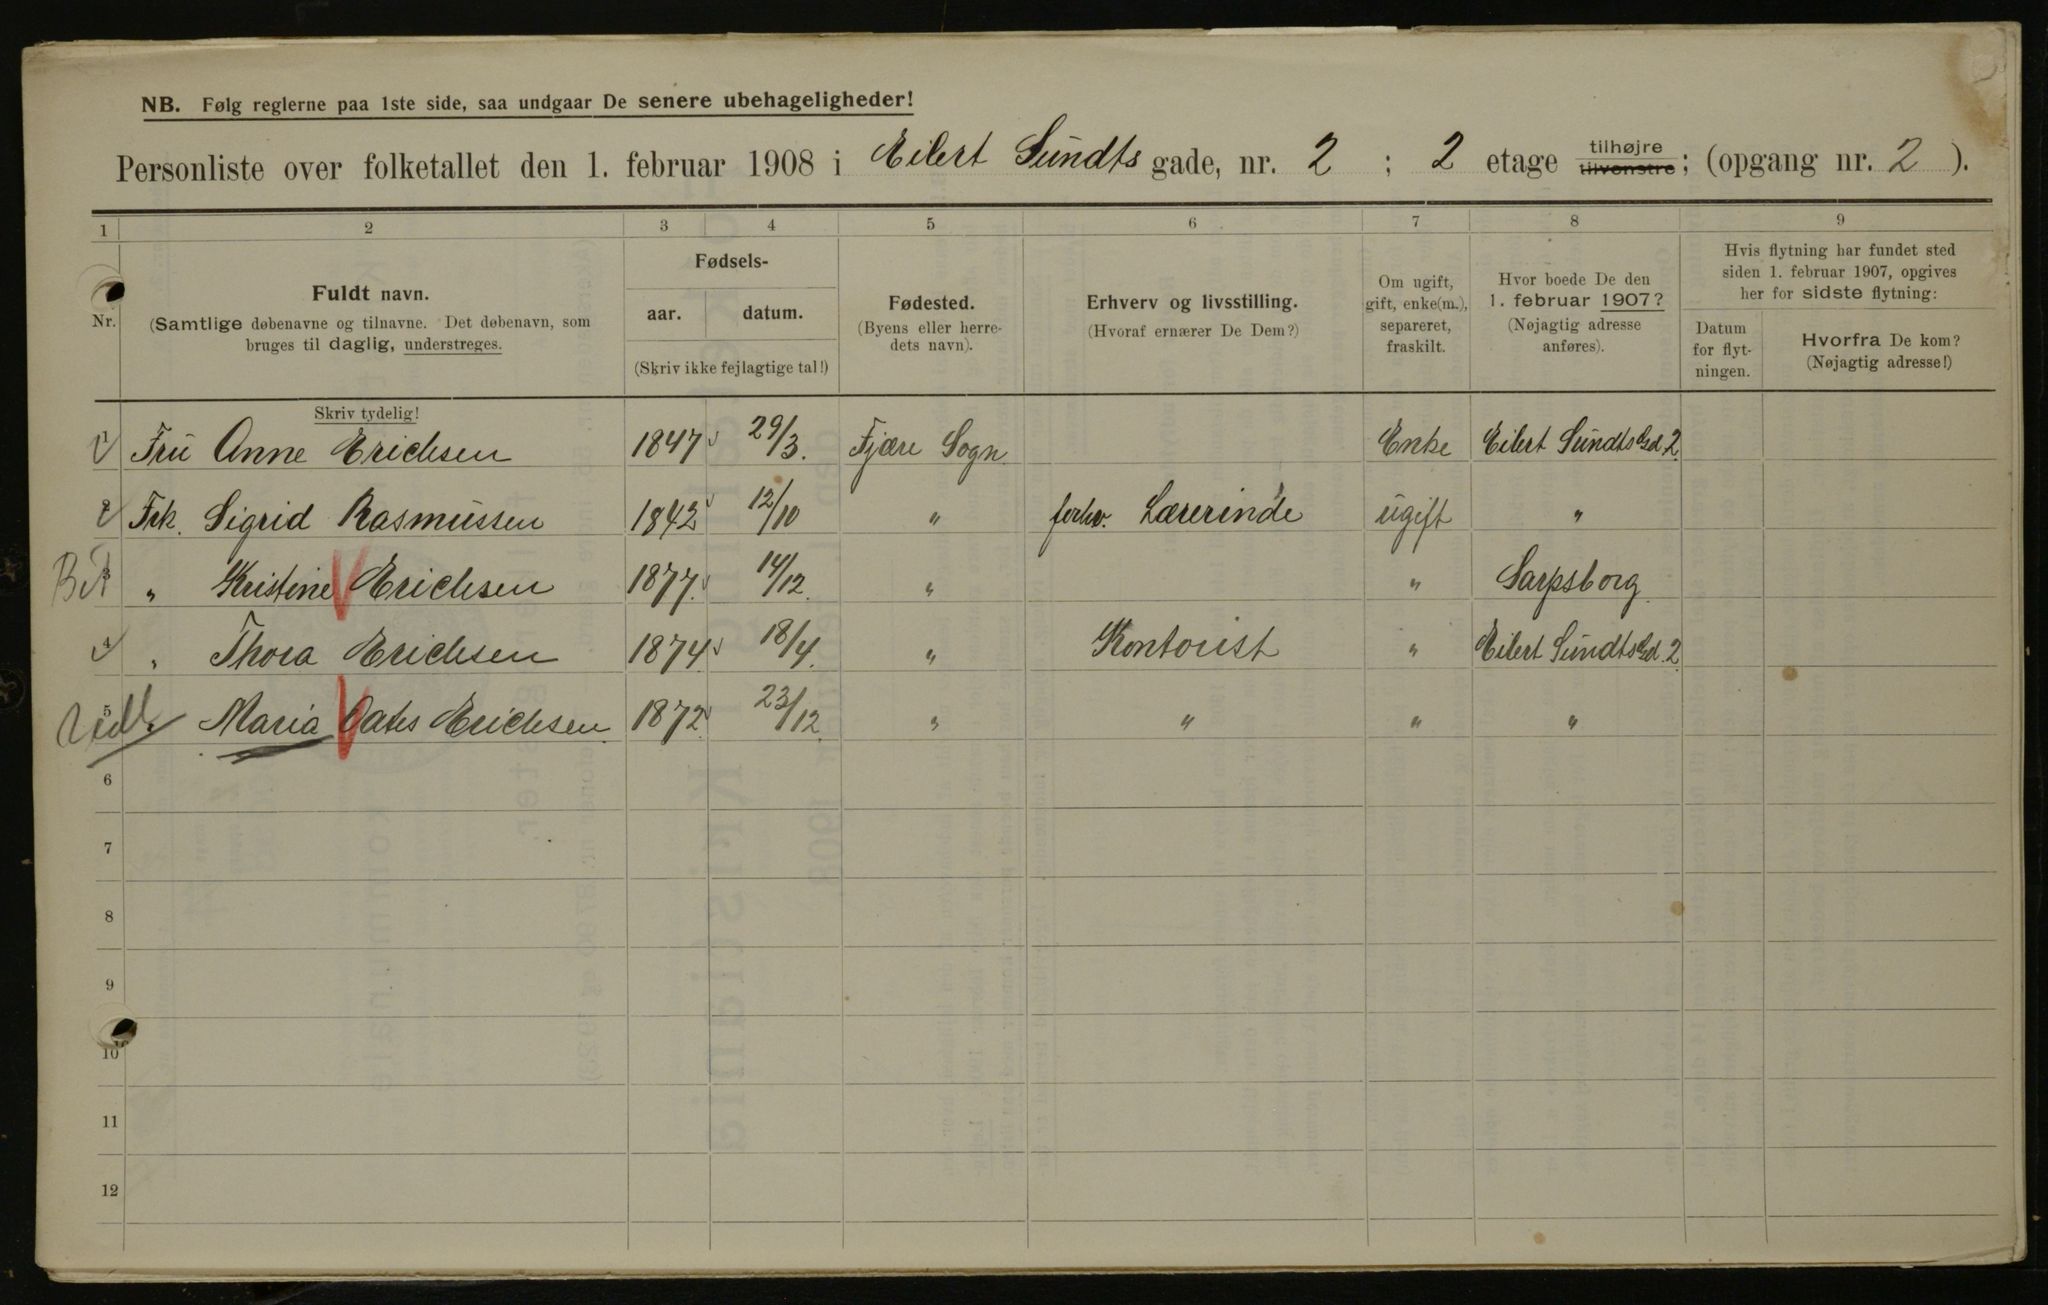 NB. Følg reglerne paa 1ste side, saa undgaar De senere ubehageligheder!
Personliste over folketallet den 1. februar 1908 i Eilert Sundts gade, nr. 2 ; 2 etage tilhøjre tilvenstre ; (opgang nr. 2 ).
1 2 3 4 5 6 7 8 9
Nr.
Fuldt navn.
(Samtlige døbenavne og tilnavne. Det døbenavn, som
bruges til daglig, understreges.
Skriv tydelig!
Fødsels-
aar. datum.
(Skriv ikke fejlagtige tal!)
Fødested.
(Byens eller herre-
dets navn).
Erhverv og livsstilling.
(Hvoraf ernærer De Dem?)
Om ugift,
gift, enke(m.),
separeret,
fraskilt.
Hvor boede De den
1. februar 1907?
(Nøjagtig adresse
anføres).
Hvis flytning har fundet sted
siden 1. februar 1907, opgives
her for sidste flytning:
Datum
for flyt-
ningen.
Hvorfra De kom?
(Nøjagtig adresse!)
1 Fru Anne Erichsen 1847 29/3. Fjære Sogn. Enke Eilert Sundts Gd. 2.
2 Frk. Sigrid Rasmussen 1842 12/10 " forhv. Lærerinde ugift "
3 " Kristine Erichsen 1877. 14/12. " " Sarpsborg.
4 " Thora Erichsen 1874 18/4. " Kontorist " Eilert Sundts Gd. 2
5 Maria Oates Erichsen. 1872. 23/12. " " " "
6
7
8
9
10
11
12